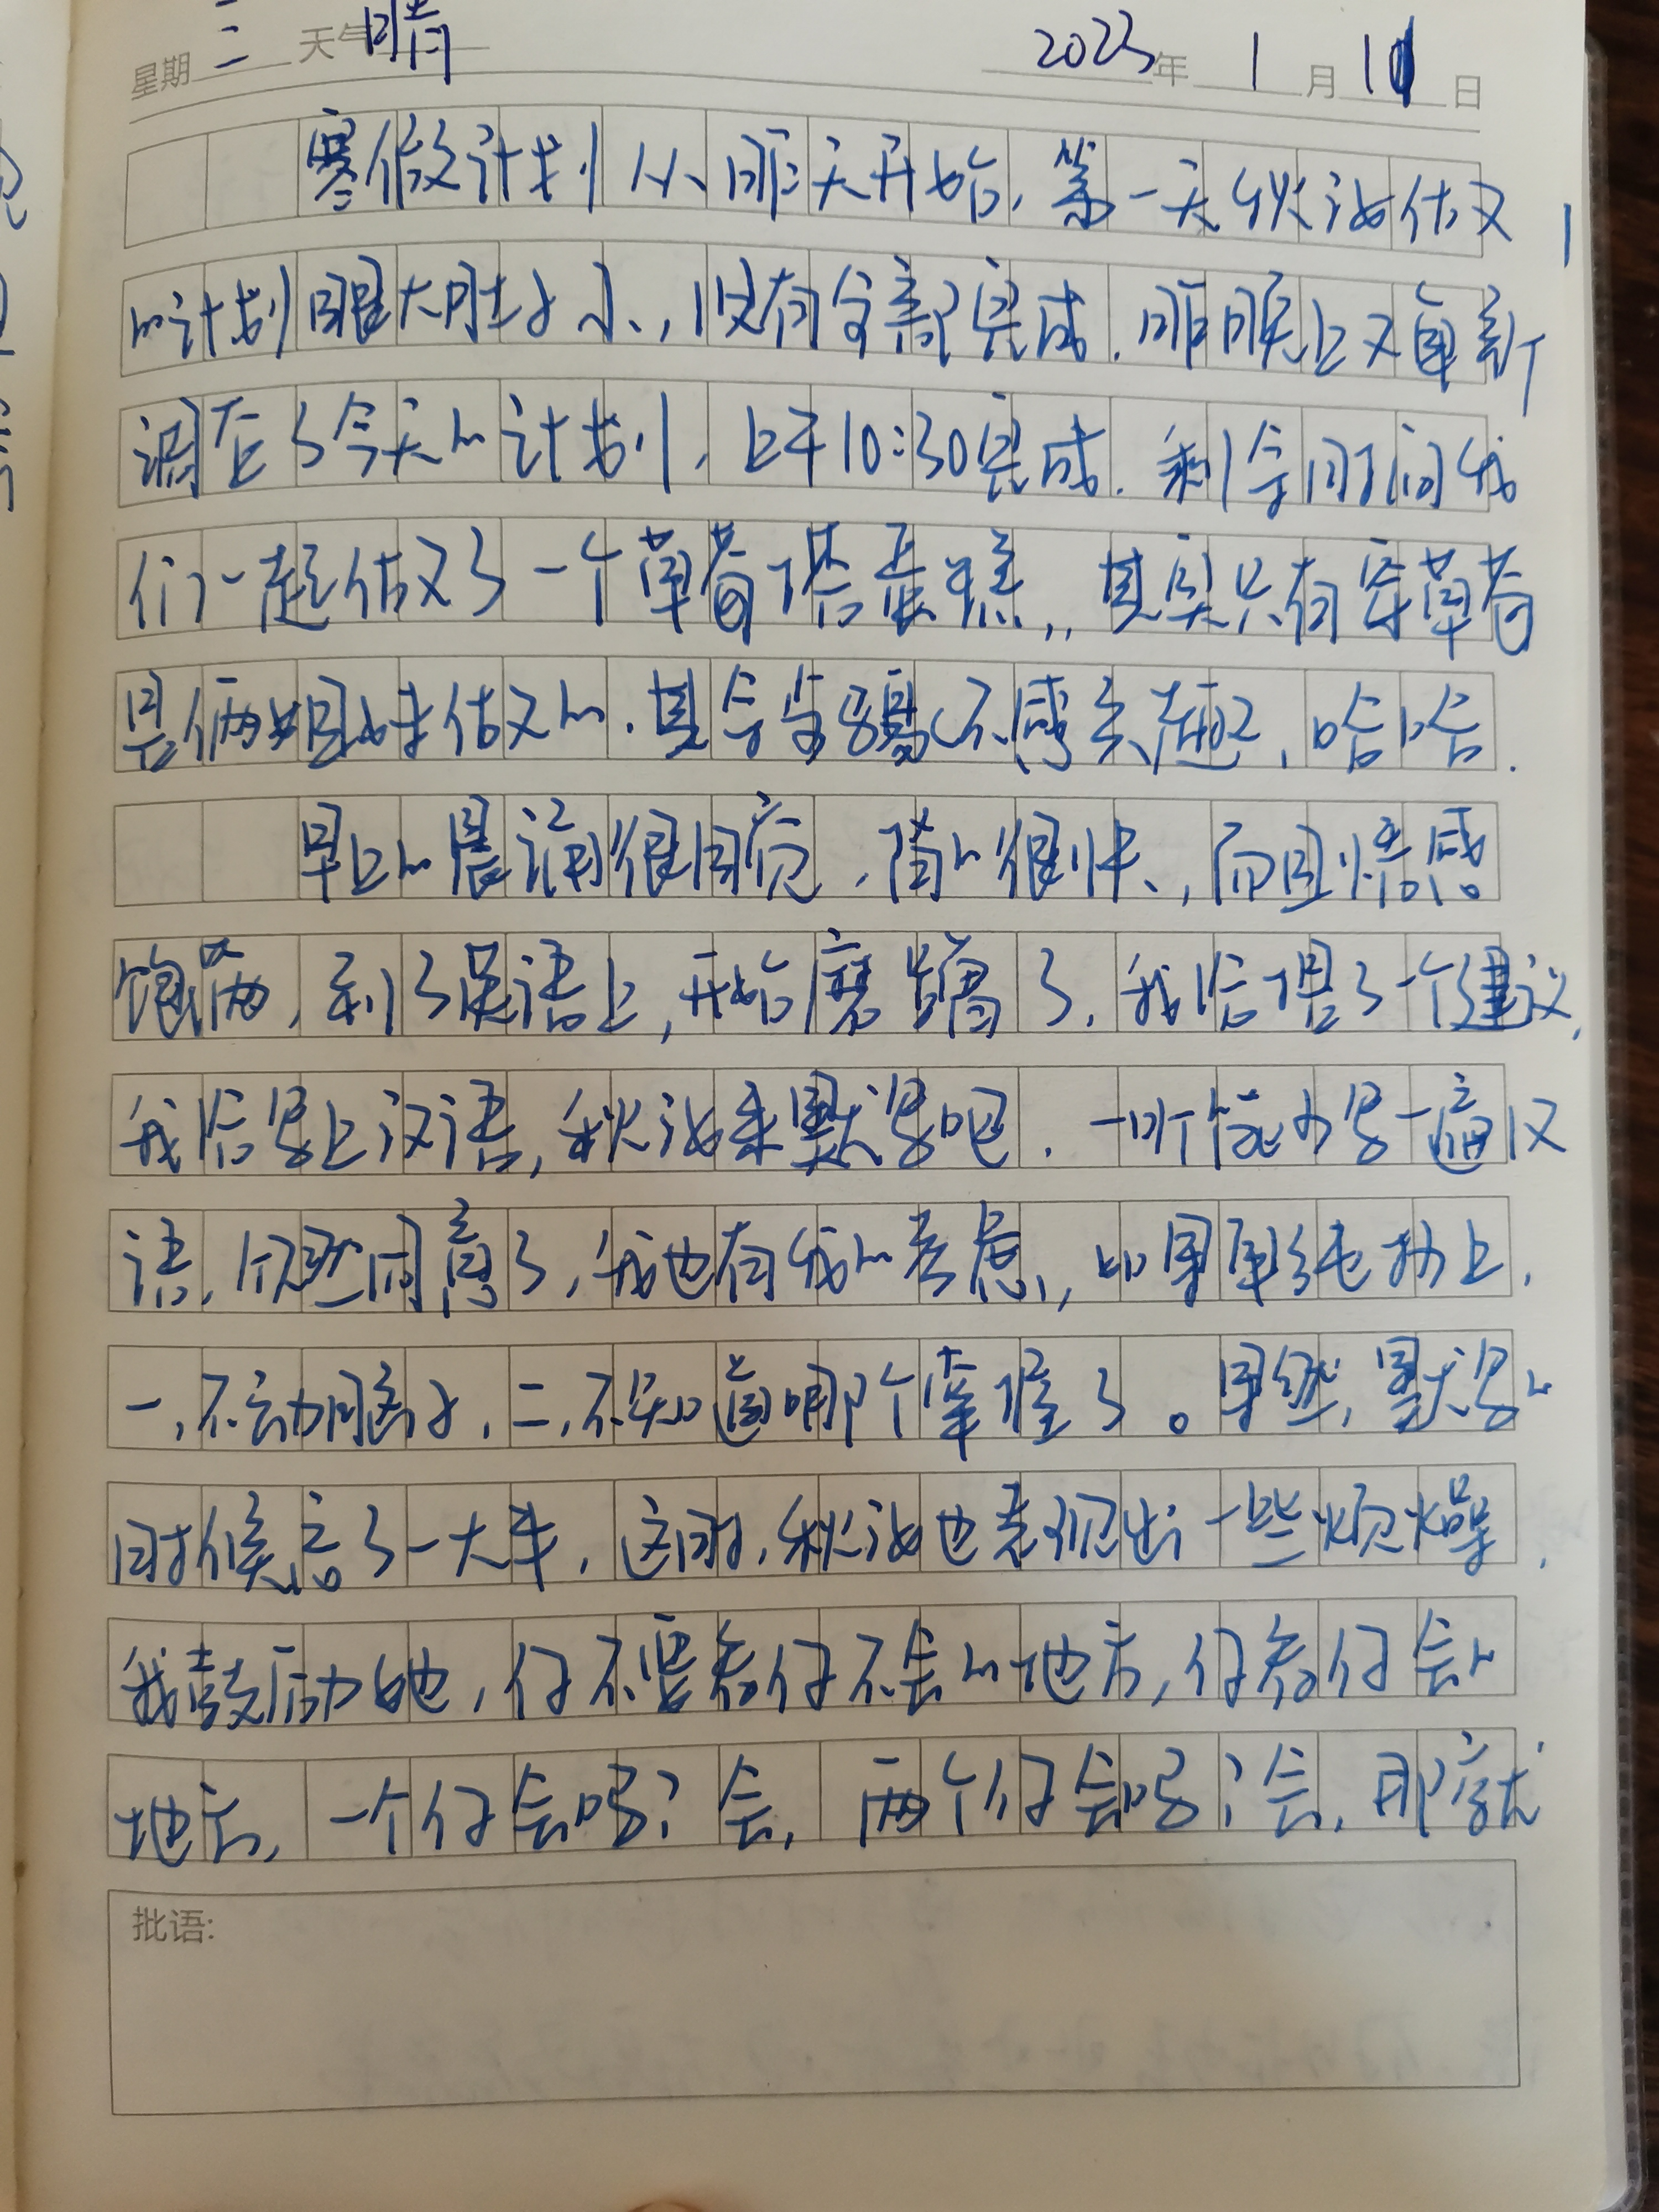 星期 三 天气 晴 2023年 1月 10日
寒假计划从昨天开始，第一天秋汝做
的计划眼大肚子小，没有全部完成，昨晚上又重新
调整了今天的计划，上午10:30完成。剩余时间我
们一起做了一个草莓塔蛋糕，其实只有穿草莓
是俩姐妹做的，其余步骤不感兴趣，哈哈。
早上的晨诵很顺，背的很快，而且情感
饱满，到了汉语上，开始磨蹭了，我给提了个建议，
我给写上汉语，秋汝来默写吧，一听说少写一遍汉
语，欣然同意了，我也有我的考虑，如果单纯抄上，
一，不动脑子，二，不知道哪个掌握了。果然，默写的
时候，忘了一大半，这时，秋汝也表现出一些烦燥，
我鼓励她，你不要看你不会的地方，你看你会的
地方，一个你会吗？会，两个你会吗？会，那就
批语：